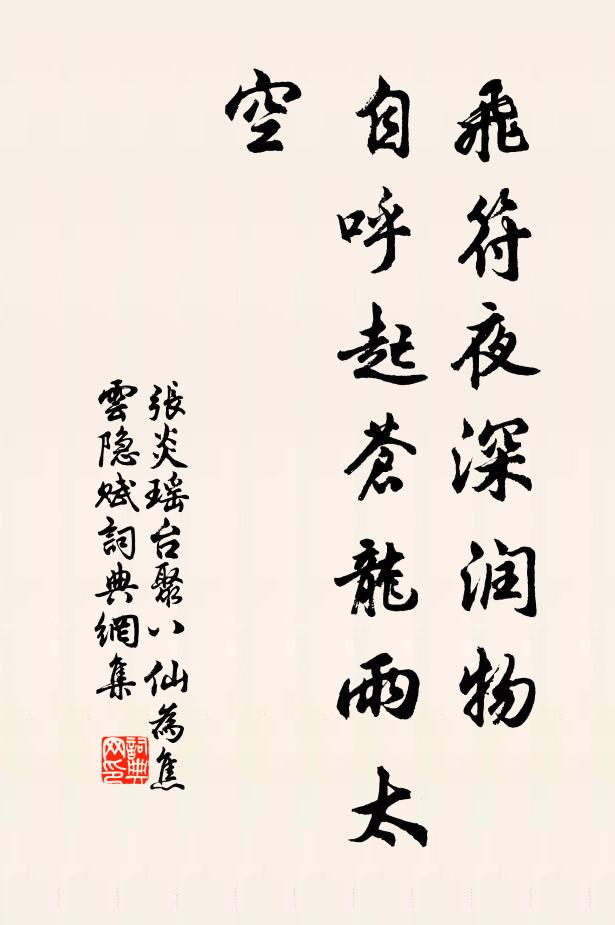 飛符夜深润物
自呼起蒼龍雨太
空
張炎瑶台聚八仙為焦
雲隐赋詞典網集
詞典
网印